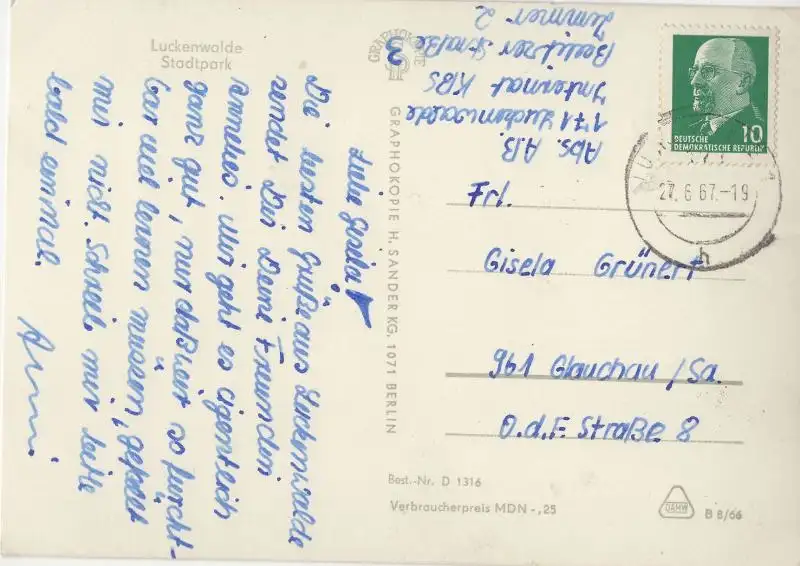 Luckenwalde
Stadtpark
Liebe Gisela!
Die besten Grüße aus Luckenwalde
sendet Dir Deine Freundin
Annelies. Mir geht es eigentlich
ganz gut, nur daß wir so fürcht-
bar viel lernen müssen, gefällt
mir nicht. Schreib mir bitte
bald einmal.
Anni.
GRAPHOKOPIE
GRAPHOKOPIE H. SANDER KG, 1071 BERLIN
3
Abs. A.B.
171 Luckenwalde
Internat KBS
Beelitzer Straße
Zimmer 2
DEUTSCHE
DEMOKRATISCHE REPUBLIK
10
27.6.67.-19
h
Frl.
Gisela Grünert
961 Glauchau/Sa.
O.d.F. Straße 8
Best.-Nr. D 1316
Verbraucherpreis MDN -,25
DAMW
B 8/66